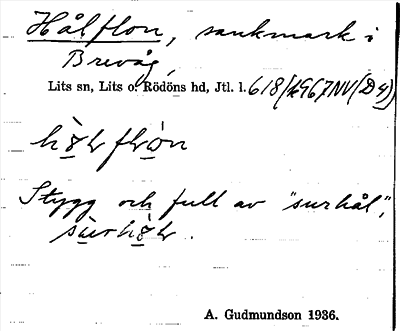 Hålflon, sankmark i
Brevåg,
Lits sn, Lits o. Rödöns hd, Jtl. l. 618/1967NV(D4)
Stygg och full av "surhål",
A. Gudmundson 1936.